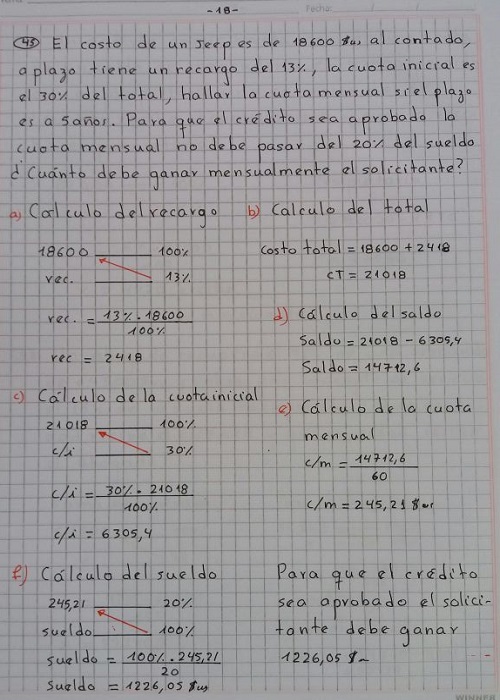 -18-
Fecha:
45 El costo de un Jeep es de 18600 $us al contado,
a plazo tiene un recargo del 13%, la cuota inicial es
el 30% del total, hallar la cuota mensual si el plazo
es a 5 años. Para que el crédito sea aprobado la
cuota mensual no debe pasar del 20% del sueldo
¿Cuánto debe ganar mensualmente el solicitante?
a) Calculo del recargo
18600 100%
rec. 13%
rec. = 13% . 18600
100%
rec = 2418
b) Calculo del total
Costo total = 18600 + 2418
CT = 21018
c) Cálculo de la cuota inicial
21018 100%
c/i 30%
c/i = 30% . 21018
100%
c/i = 6305,4
d) Cálculo del saldo
Saldo = 21018 - 6305,4
Saldo = 14712,6
e) Cálculo de la cuota
mensual
c/m = 14712,6
60
c/m = 245,21 $us
f) Cálculo del sueldo
245,21 20%
sueldo 100%
sueldo = 100% . 245,21
20
sueldo = 1226,05 $us
Para que el crédito
sea aprobado el solici-
tante debe ganar
1226,05 $us
WINNER